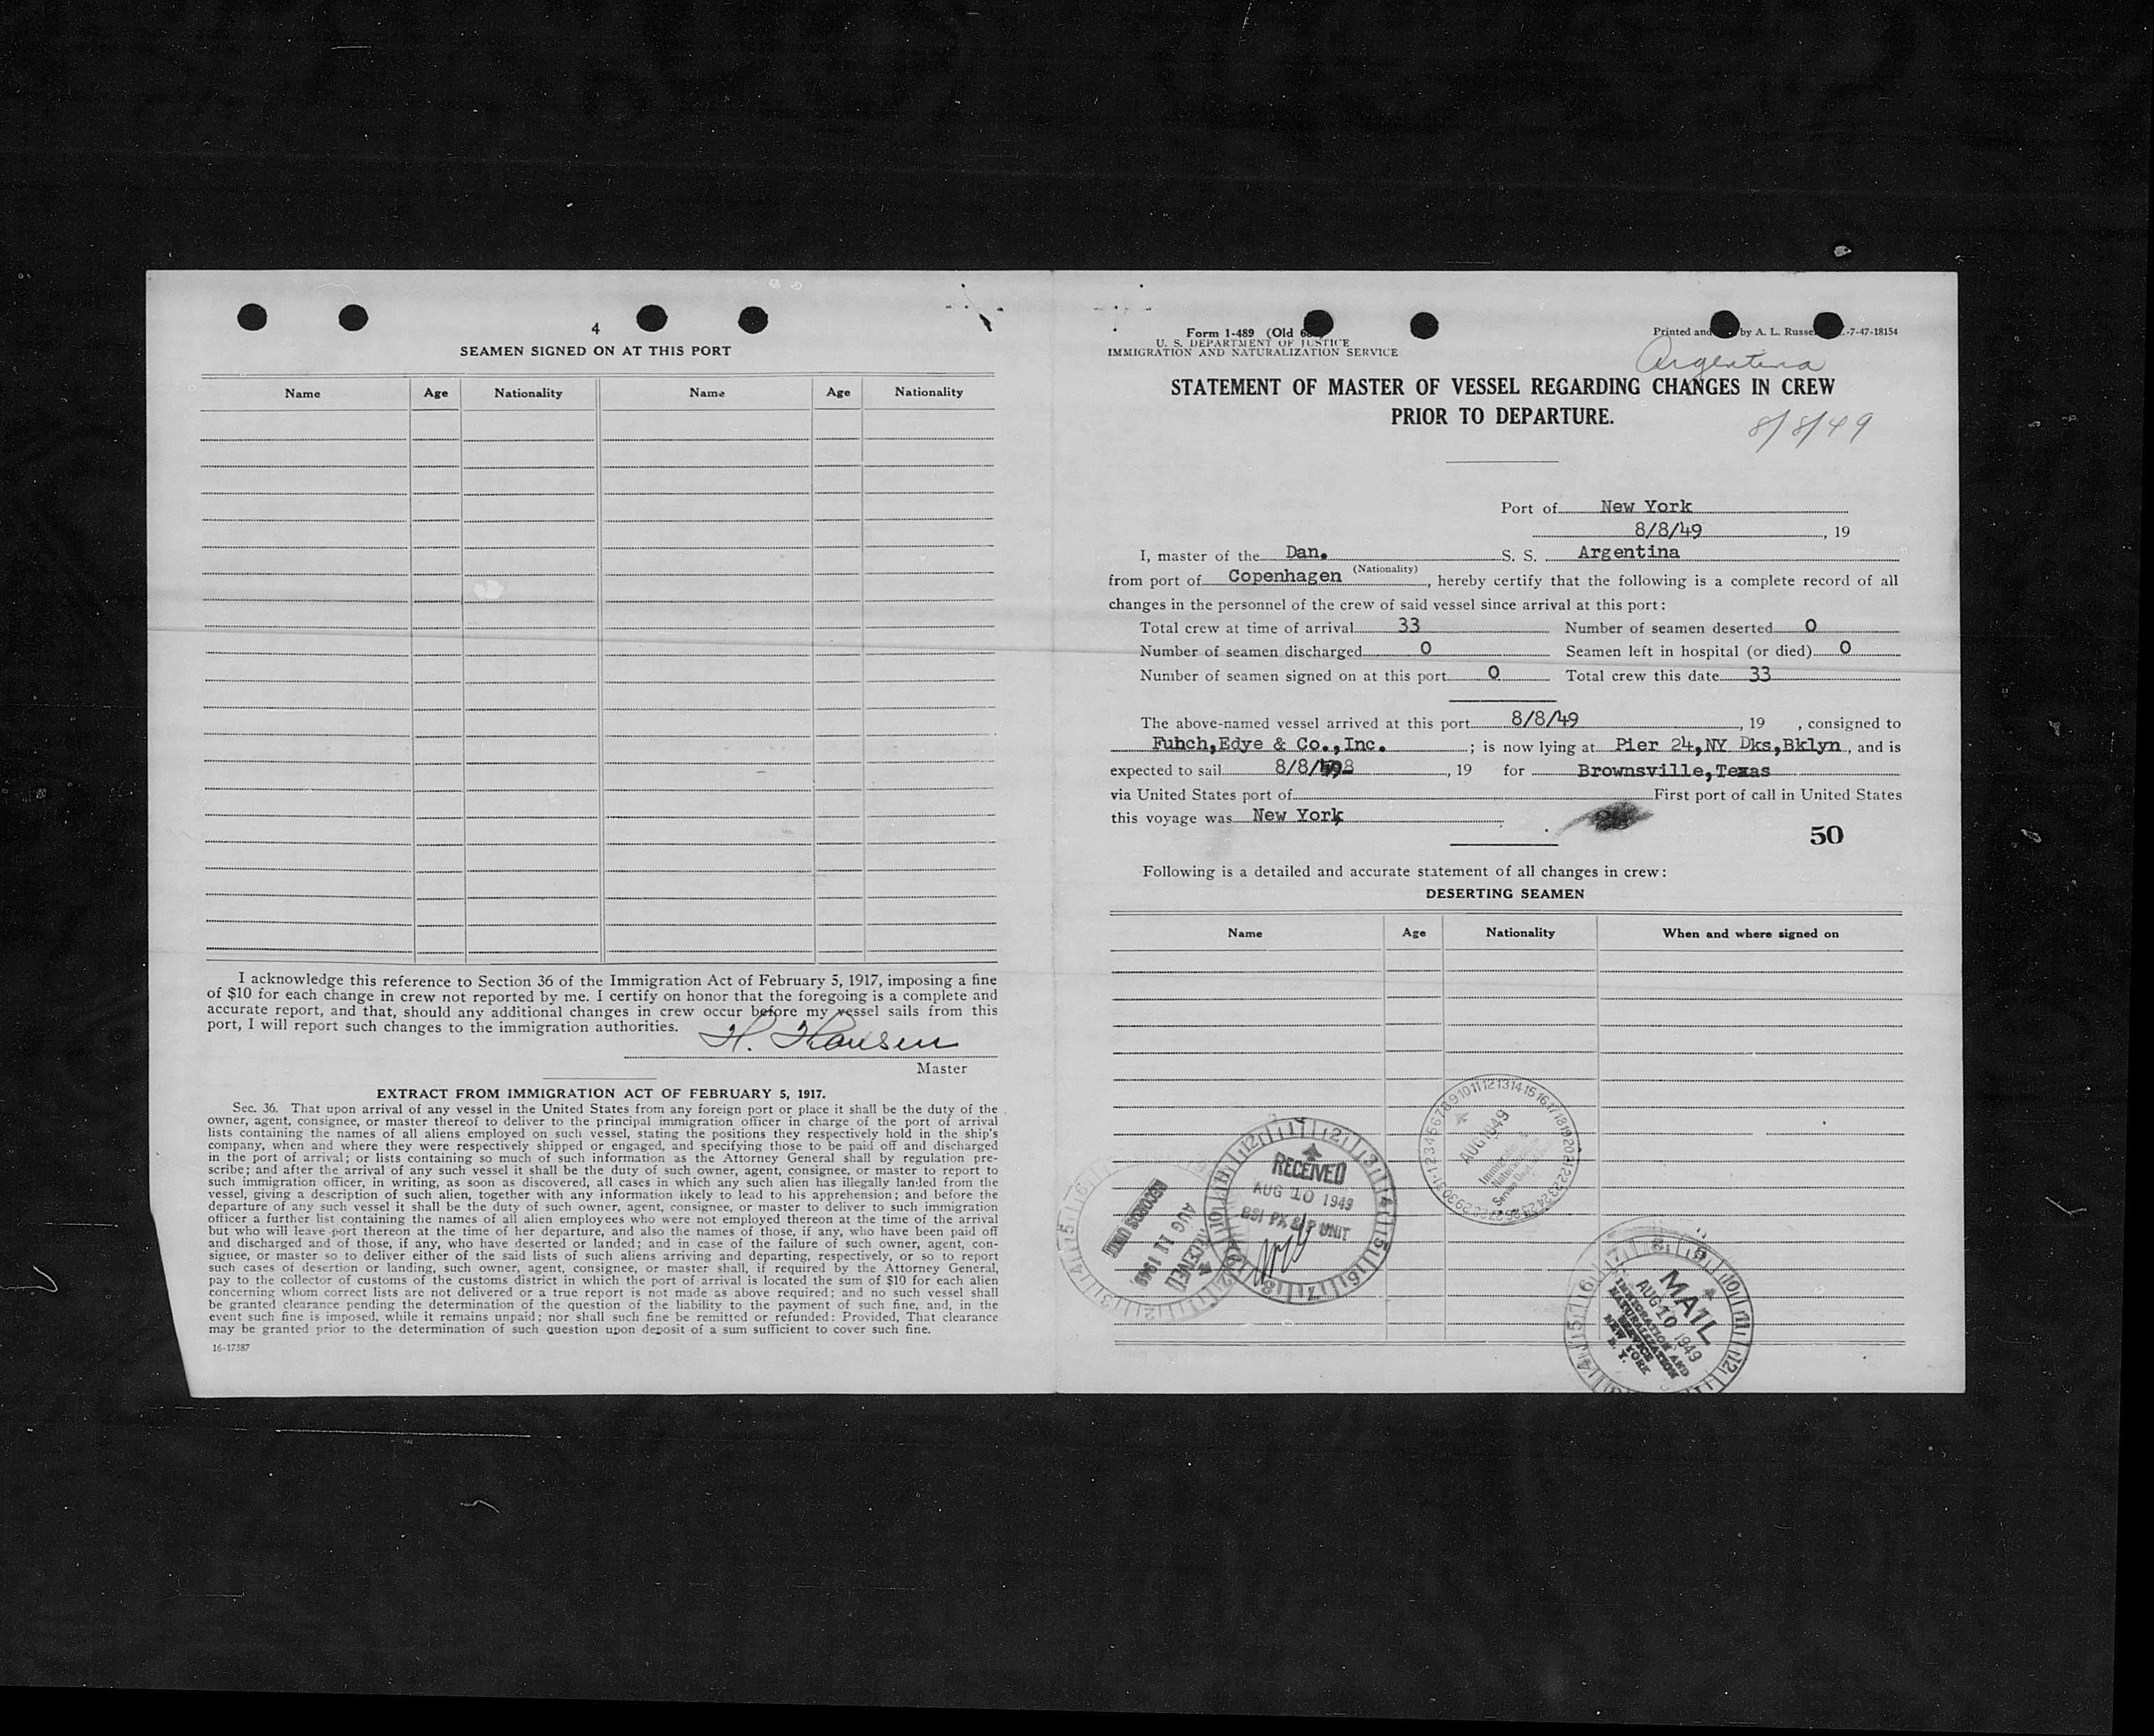 4
SEAMEN SIGNED ON AT THIS PORT
Name Age Nationality Name Age Nationality
I acknowledge this reference to Section 36 of the Immigration Act of February 5, 1917, imposing a fine
of $10 for each change in crew not reported by me. I certify on honor that the foregoing is a complete and
accurate report, and that, should any additional changes in crew occur before my vessel sails from this
port, I will report such changes to the immigration authorities.
H. Hansen
Master
EXTRACT FROM IMMIGRATION ACT OF FEBRUARY 5, 1917.
Sec. 36. That upon arrival of any vessel in the United States from any foreign port or place it shall be the duty of the
owner, agent, consignee, or master thereof to deliver to the principal immigration officer in charge of the port of arrival
lists containing the names of all aliens employed on such vessel, stating the positions they respectively hold in the ship's
company, when and where they were respectively shipped or engaged, and specifying those to be paid off and discharged
in the port of arrival; or lists containing so much of such information as the Attorney General shall by regulation pre-
scribe; and after the arrival of any such vessel it shall be the duty of such owner, agent, consignee, or master to report to
such immigration officer, in writing, as soon as discovered, all cases in which any such alien has illegally landed from the
vessel, giving a description of such alien, together with any information likely to lead to his apprehension; and before the
departure of any such vessel it shall be the duty of such owner, agent, consignee, or master to deliver to such immigration
officer a further list containing the names of all alien employees who were not employed thereon at the time of the arrival
but who will leave port thereon at the time of her departure, and also the names of those, if any, who have been paid off
and discharged and of those, if any, who have deserted or landed; and in case of the failure of such owner, agent, con-
signee, or master so to deliver either of the said lists of such aliens arriving and departing, respectively, or so to report
such cases of desertion or landing, such owner, agent, consignee, or master shall, if required by the Attorney General,
pay to the collector of customs of the customs district in which the port of arrival is located the sum of $10 for each alien
concerning whom correct lists are not delivered or a true report is not made as above required; and no such vessel shall
be granted clearance pending the determination of the question of the liability to the payment of such fine, and, in the
event such fine is imposed, while it remains unpaid; nor shall such fine be remitted or refunded: Provided, That clearance
may be granted prior to the determination of such question upon deposit of a sum sufficient to cover such fine.
16-17387
Form 1-489 (Old
U. S. DEPARTMENT OF JUSTICE
IMMIGRATION AND NATURALIZATION SERVICE
Printed and by A. L. Russe -7-47-18154
Argentina
STATEMENT OF MASTER OF VESSEL REGARDING CHANGES IN CREW
PRIOR TO DEPARTURE.
8/8/49
Port of New York
8/8/49 , 19
I, master of the Dan. S. S. Argentina
(Nationality)
from port of Copenhagen , hereby certify that the following is a complete record of all
changes in the personnel of the crew of said vessel since arrival at this port:
Total crew at time of arrival 33 Number of seamen deserted 0
Number of seamen discharged 0 Seamen left in hospital (or died) 0
Number of seamen signed on at this port 0 Total crew this date 33
The above-named vessel arrived at this port 8/8/49 , 19 , consigned to
Fuhch,Edye & Co.,Inc. ; is now lying at Pier 24,NY Dks,Bklyn , and is
expected to sail 8/8/ , 19 for Brownsville,Texas
via United States port of First port of call in United States
this voyage was New York
50
Following is a detailed and accurate statement of all changes in crew:
DESERTING SEAMEN
Name Age Nationality When and where signed on
AUG 1949
RECEIVED
AUG 10 1949
BSI PX & P UNIT
RECORDS UNIT
AUG 11 1949
RECEIVED
MAIL
AUG 10 1949
IMMIGRATION AND
NATURALIZATION
SERVICE
NEW YORK
N. Y.